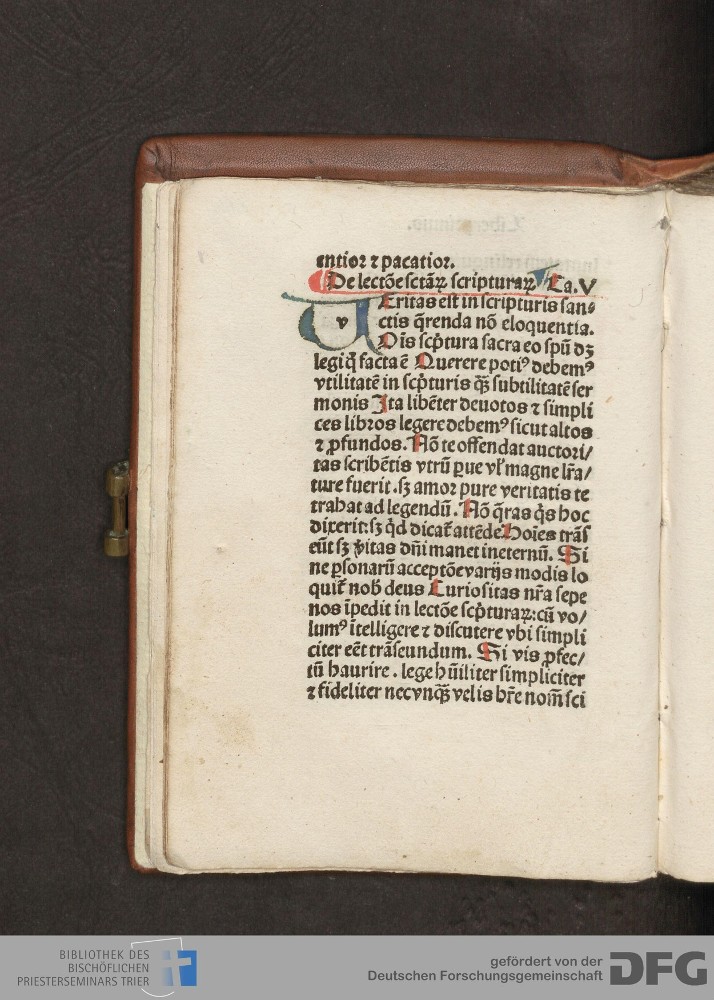 entior ⁊ pacatior.
De lectōe sctāꝝ scripturaꝝ Ca. V
v Eritas est in scripturis san⸗
ctis q̄renda nō eloquentia.
Ois scp̄tura sacra eo spū dꝫ
legi q̄ facta ē Querere potiꝰ debemꝰ
vtilitatē in scp̄turis qꝫ̄ subtilitatē ser
monis Ita libēter deuotos ⁊ simpli
ces libros legere debemꝰ sicut altos
⁊ ꝓfundos. Nō te offendat auctori/
tas scribētis vtrū ꝑue vl̓ magne lr̄a/
ture fuerit .sꝫ amor pure veritatis te
trahat ad legendū. Nō q̄ras q̄s hoc
dixerit: sꝫ q̄d dicat̄ attēde Hoīes trās
eūt sꝫ v̄itas dn̄i manet in eternū. Si
ne ꝑsonarū acceptōe varijs modis lo
quit̄ nob̄ deus Curiositas nr̄a sepe
nos īpedit in lectōe scp̄turaꝝ: cū vo/
lumꝰ ītelligere ⁊ discutere vbi simpli
citer eēt trāseundum. Si vis ꝓfec/
tū haurire . lege hūiliter simpliciter
⁊ fideliter nec vnqꝫ̄ velis hr̄e nom̄ sci
BIBLIOTHEK DES
BISCHÖFLICHEN
PRIESTERSEMINARS TRIER
gefördert von der
Deutschen Forschungsgemeinschaft
DFG